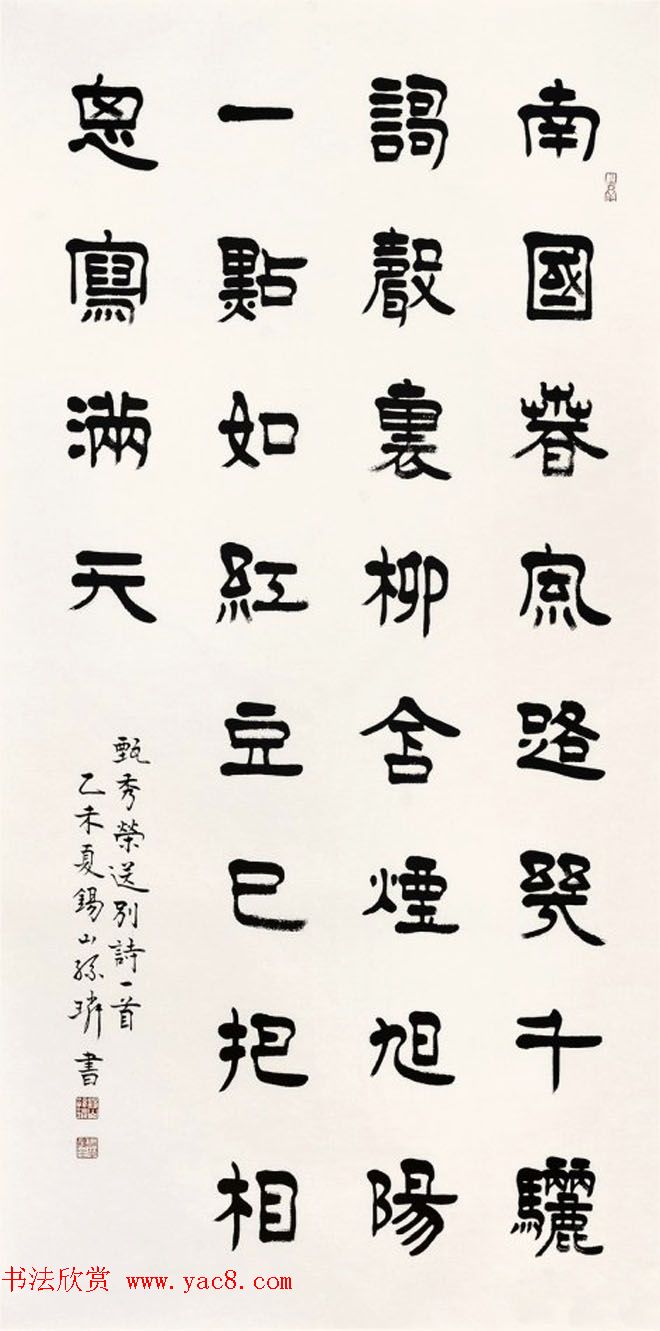 南國春風路幾千驪
謌聲裏柳含煙旭陽
一點如紅豆已把相
思寫滿天
甄秀榮送別詩一首
乙未夏錫山孫璘書
书法欣赏 www.yac8.com